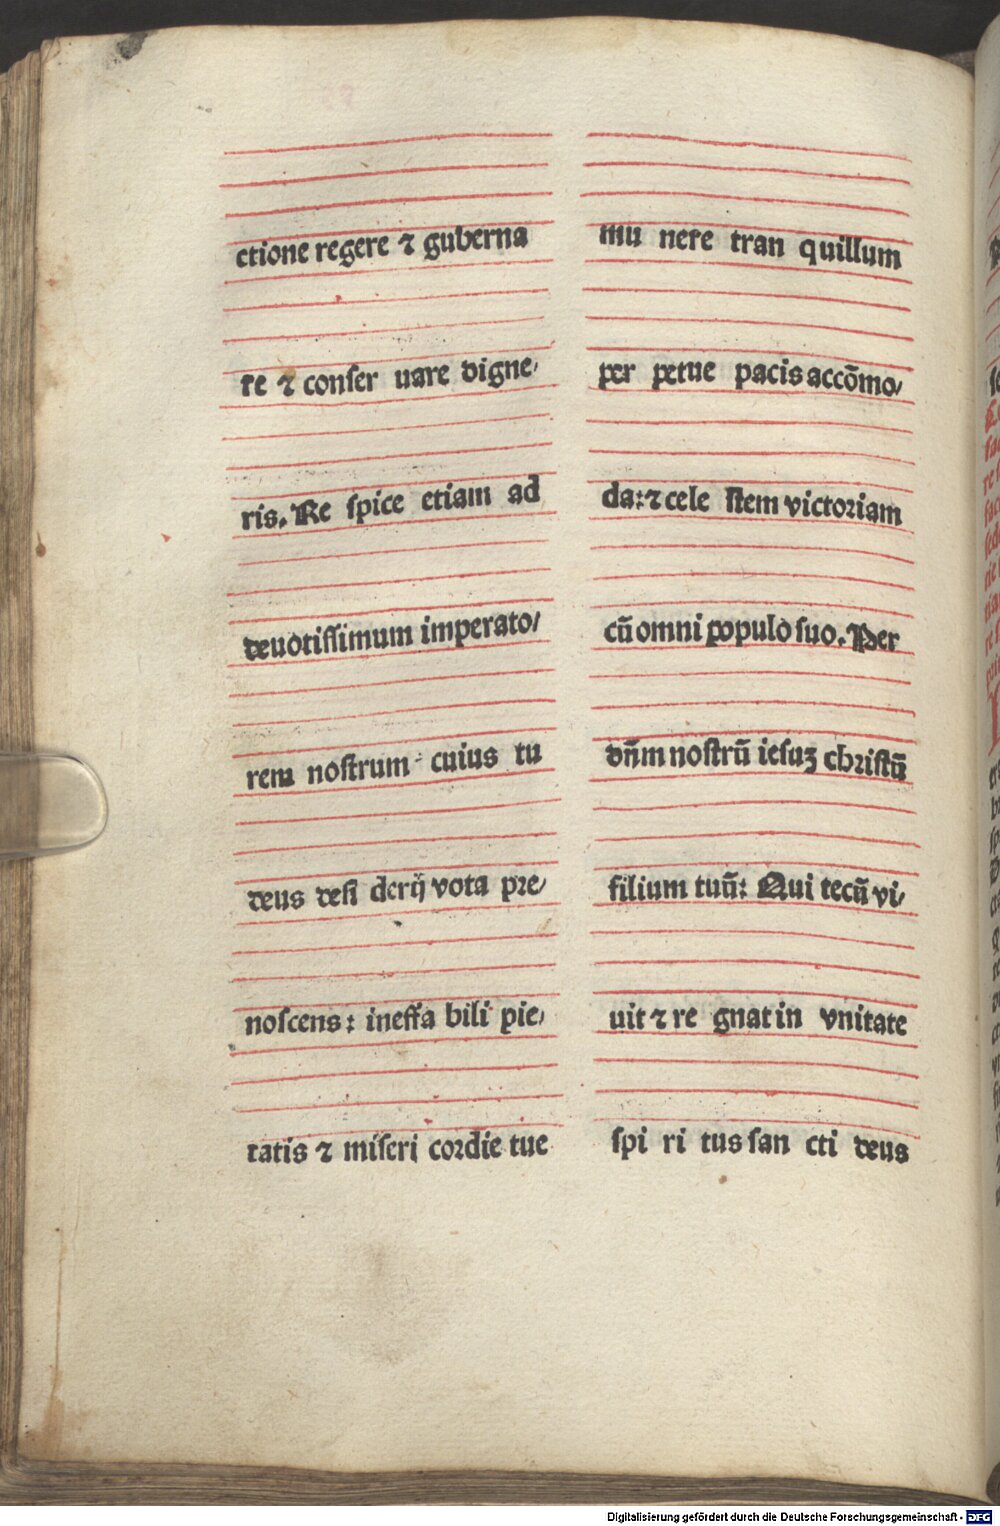 ctione regere ⁊ guberna
re ⁊ conser uare digne/
ris. Re spice etiam ad
deuotissimum imperato/
rem nostrum cuius tu
deus desi derij vota pre/
noscens: ineffa bili pie/
tatis ⁊ miseri cordie tue
mu nere tran quillum
per petue pacis accōmo/
da: ⁊ cele stem victoriam
cū omni populo suo. Per
dn̄m nostrū iesuꝫ christū
filium tuū: Qui tecū vi/
uit ⁊ re gnat in vnitate
spi ri tus san cti deus
Digitalisierung gefördert durch die Deutsche Forschungsgemeinschaft - DFG